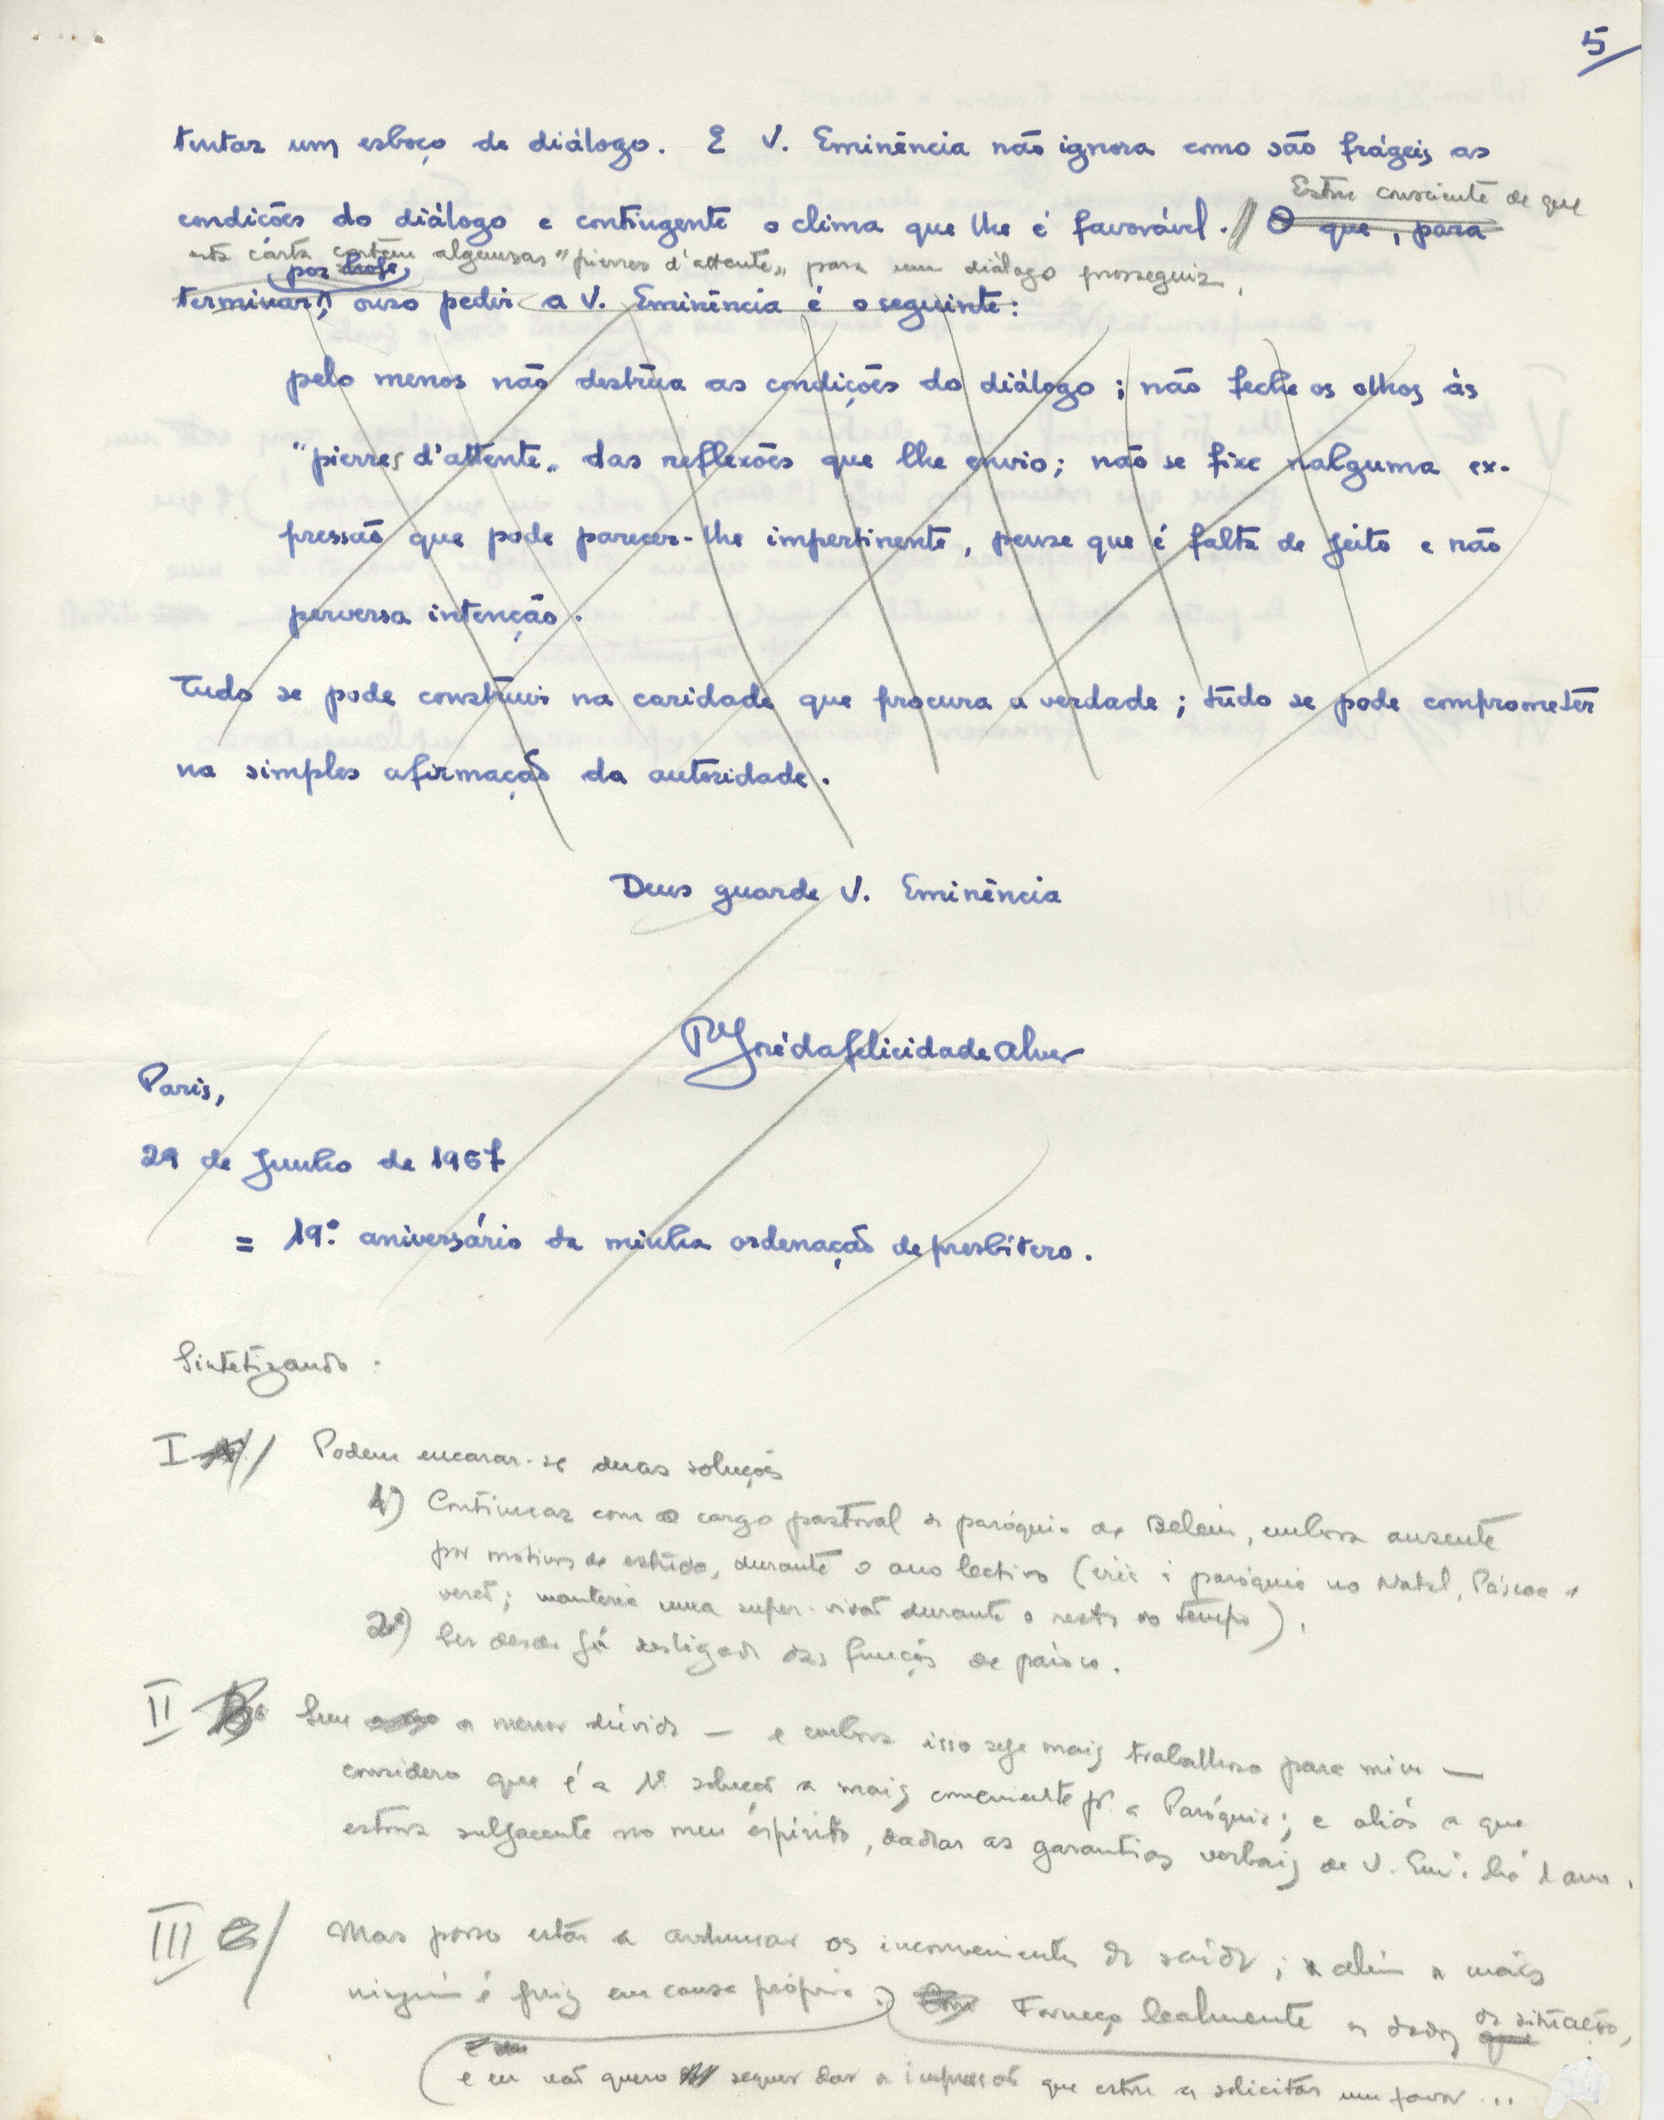 5
tentar um esboço de diálogo. E V. Eminência não ignora como são frágeis as
Estou consciente de que
condições do diálogo e contingente o clima que lhe é favorável. // O que, para
esta carta contém algumas "pierres d'attente" para um diálogo prosseguir.
por hoje,
terminar, ouso pedir a V. Eminência é o seguinte:
pelo menos não destrua as condições do diálogo; não feche os olhos às
"pierres d'attente" das reflexões que lhe envio; não se fixe nalguma ex-
pressão que pode parecer-lhe impertinente, pense que é falta de jeito e não
perversa intenção.
Tudo se pode construir na caridade que procura a verdade; tudo se pode comprometer
na simples afirmação da autoridade.
Deus guarde V. Eminência
Pe José da Felicidade Alves
Paris,
29 de Junho de 1967
= 19.º aniversário da minha ordenação de presbítero.
Sintetizando:
I // Podem encarar-se duas soluções
1ª) Continuar com o cargo pastoral da paróquia de Belém, embora ausente
por motivos de estudo, durante o ano lectivo (viria à paróquia no Natal, Páscoa e
verão; manteria uma super-visão durante o resto do tempo).
2ª) Ser desde já desligado das funções de pároco.
II B Sem a menor dúvida — e embora isso seja mais trabalhoso para mim —
considero que é a 1ª solução a mais conveniente pª a Paróquia; e aliás a que
estava subjacente no meu espírito, dadas as garantias verbais de V. Emª há 1 ano.
III / Mas posso estar a avolumar os inconvenientes da saída; e além do mais
ninguém é juiz em causa própria. Forneço lealmente os dados da situação,
que
(e eu não quero sequer dar a impressão que estou a solicitar um favor...